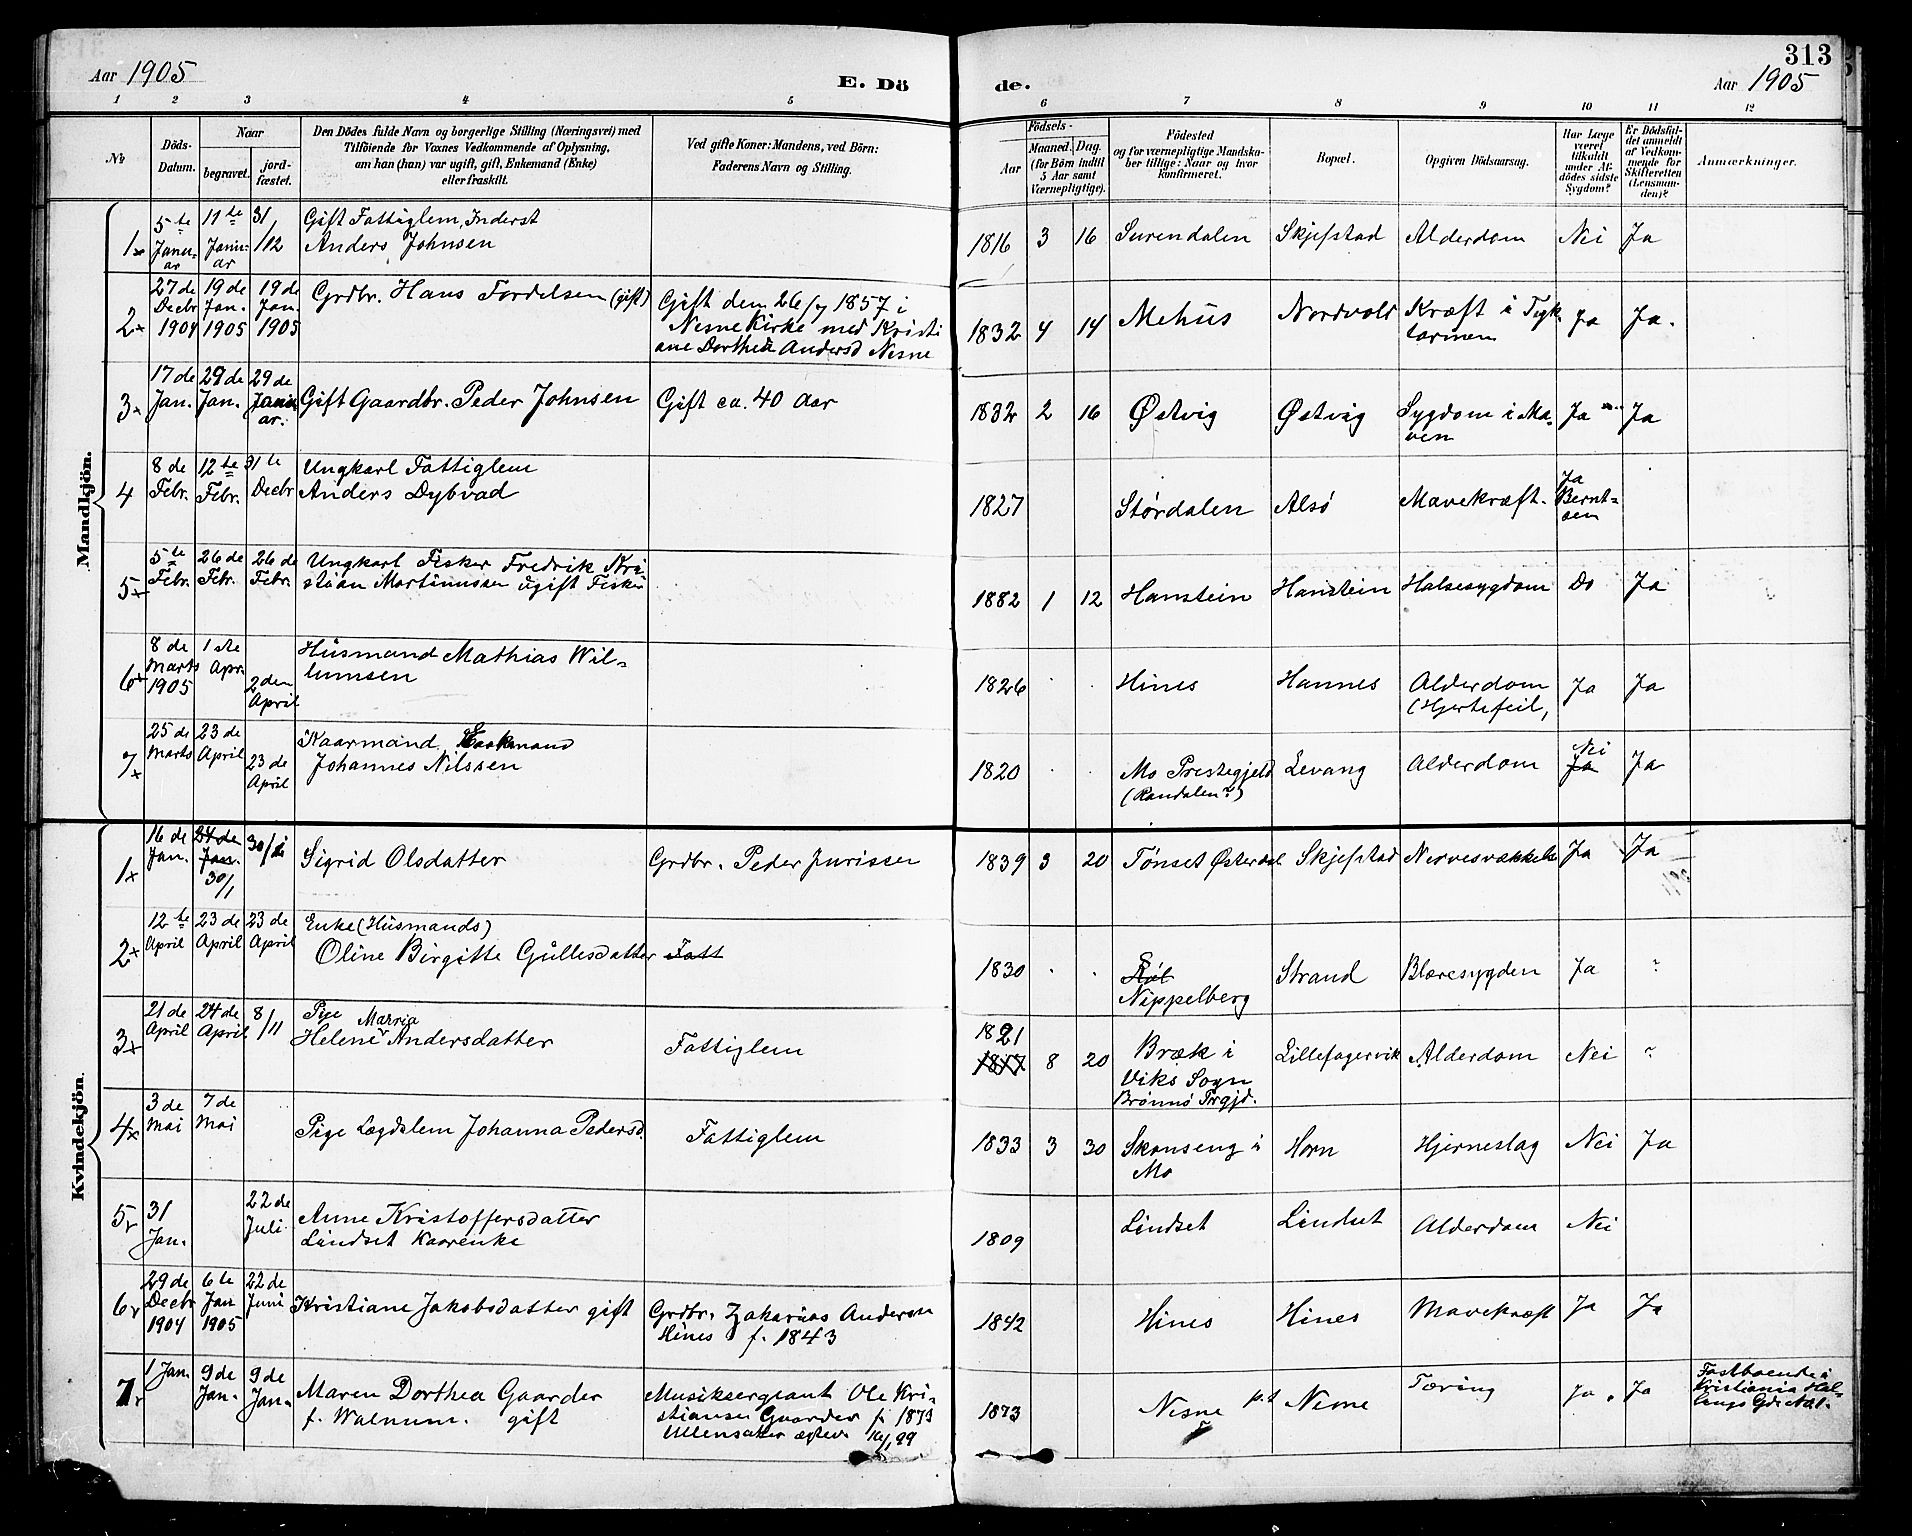 313
Aar 1905
E. Dö
de.
Aar 1905
1 2 3 4 5 6 7 8 9 10 11 12
No
Döds-Datum.
Naar
begravet.
jordfæstet.
Den Dödes fulde Navn og borgerlige Stilling (Næringsvei) med
Tilföiende for Voxnes Vedkommende af Oplysning,
om hun (han) var ugift, gift, Enkemand (Enke)
eller fraskilt.
Ved gifte Koner: Mandens, ved Börn:
Faderens Navn og Stilling.
Födsels-
Aar
Maaned. Dag.
(for Börn indtil
5 Aar samt
Værnepligtige).
Födested
og for værnepligtige Mandskaber tillige: Naar og hvor
konfirmeret.
Bopæl.
Opgiven Dödsaarsag.
Har Læge
været
tilkaldt
under Afdödes sidste
Sygdom?
Er Dödsfaldet anmeldt
af Vedkommende for
Skifteretten
(Lensmanden)?
Anmærkninger.
Mandkjön.
1x 5te Januar 11te Januar 31/12 Gift Fattiglem, Inderst
Anders Johnsen 1816 3 16 Surendalen Skjefstad Alderdom Nei Ja
2x 27de Decbr 1904 19de Jan. 1905 19de Jan. 1905 Grdbr. Hans Tordelsen (gift) Gift den 26/7 1857 i
Nesne Kirke med Kristi
ane Dorthea Andersd Nesne 1832 4 14 Mehus Nordvold Kræft i Tyk
tarmen Ja Ja.
3x 17de Jan. 29de Jan. 29de Januar. Gift Gaardbr. Peder Johnsen Gift ca. 40 Aar 1832 2 16 Østvig Østvig Sygdom i Ma-
ven Ja Ja
4 8de Febr. 12te Febr. 31te Decbr Ungkarl Fattiglem
Anders Dybvad 1827 Størdalen Alsø Mavekræft. Ja
Bernt-
sen
5x 5te Febr. 26de Febr. 26de Febr. Ungkarl Fisker Fredrik Kri
stian Martinussen ugift Fisker 1882 1 12 Hanstein Hanstein Halsesygdom Do Ja
6x 8de Marts 1905 1ste Apr. 2den April Husmand Mathias Wil-
lumsen 1826 . . Hines Hannes Alderdom
(Hjertefeil, Ja Ja
7x 25de Marts 23de April 23de April Kaarmand
Johannes Nilssen 1820 . . Mo Prestegjeld
(Randalen?) Levang Alderdom Nei
Ja Ja
Kvindekjön.
1x 16de Jan. 24de Jan. 30/1 30/1 Sigrid Olsdatter Grdbr. Peder Jurissen 1839 3 20 Tønset Østerdal Skjefstad Nervesvækkelse Ja Ja
2x 12te April 23de April 23de April Enke (Husmands)
Oline Birgitte Gullesdatter Fatt 1830 . . Nippelberg Strand Blæresygdom Ja ?
3x 21de April 24de April 8/11 Pige
Marria
Helene Andersdatter Fattiglem 1821
1817 8 20 Bræk i
Viks Sogn
Brønnø Prgjd. Lillefagervik Alderdom Nei ?
4x 3de Mai 7de Mai Pige Lægdslem Johanna Pedersd. Fattiglem 1833 3 30 Skonseng i
Mo Horn Hjerneslag Nei Ja
5 31 Jan. 22de Juli Anne Kristoffersdatter
Lindset Kaarenke 1809 Lindset Lindset Alderdom Nei
6 29de Decbr 1904 6te Jan 1905 22de Juni Kristiane Jakobsdatter gift Grdbr. Zakarias Andersen
Hines f. 1843 1842 Hines Hines Mavekræft Ja Ja
7 1 Jan. 9de Jan. 9de Jan. Maren Dorthea Gaarder
f. Walnum. gift Musiksergeant Ole Kri-
stiansen Gaarder f. 1873
Ullensaker 1873 Nesne p.t Nesne Tæring Ja. Ja Fastboende i
Kristiania